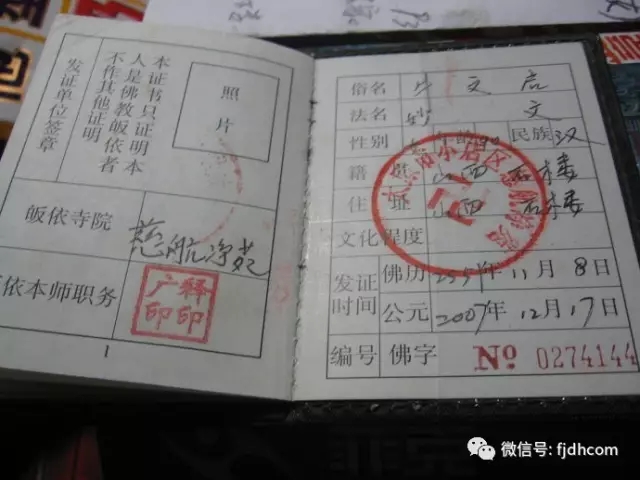 本证书只证明本
人是佛教皈依者
不作其他证明
发证单位签章
照
片
皈依寺院
慈航净苑
依本师职务
广释
印印
1
俗名 文
法名 妙文
性别 民族 汉
籍贯 山西 石楼
住址 山西 石楼
文化程度
小店区
发证
时间
佛历 年11月8日
公元 2007年12月17日
编号 佛字 № 0274144
微信号: fjdhcom